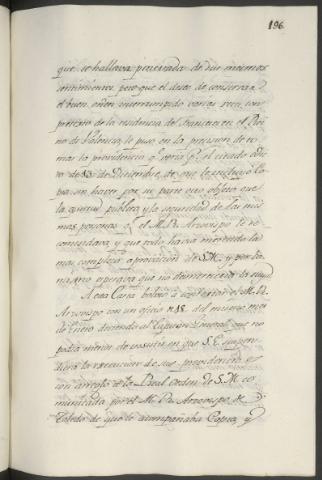 196.
que se hallava penetrada de sus mismos
sentimientos, pero que el deseo de conservar
el buen orden interrumpido varias veces, con
pretexto de la residencia del Frances en el Rei-
no de Valencia, le puso en la precision de to-
mar la providencia q.e veria p.r el citado
de 13 de Diciembre, de que le incluyo Co-
pia, sin haver por su parte otro objeto que
la quietud publica, y la seguridad de las mis-
mas personas q.e el M. R. Arzovispo le re-
comendava, y que todo havia merecido la
mas completa aprovacion de S. M. y por la
esperava que no
A esta Carta bolvió a contextar el M. R.
Arzovispo con un oficio n.º 15. del mismo mes
de Enero diciendo al Capitan General que no
podia menos de insistir en que S. E. suspen-
diera la execucion de sus providencias
con arreglo a la Real orden de S. M. co-
municada por el M. R. Arzovispo de
Toledo de que le acompañaba Copia, y